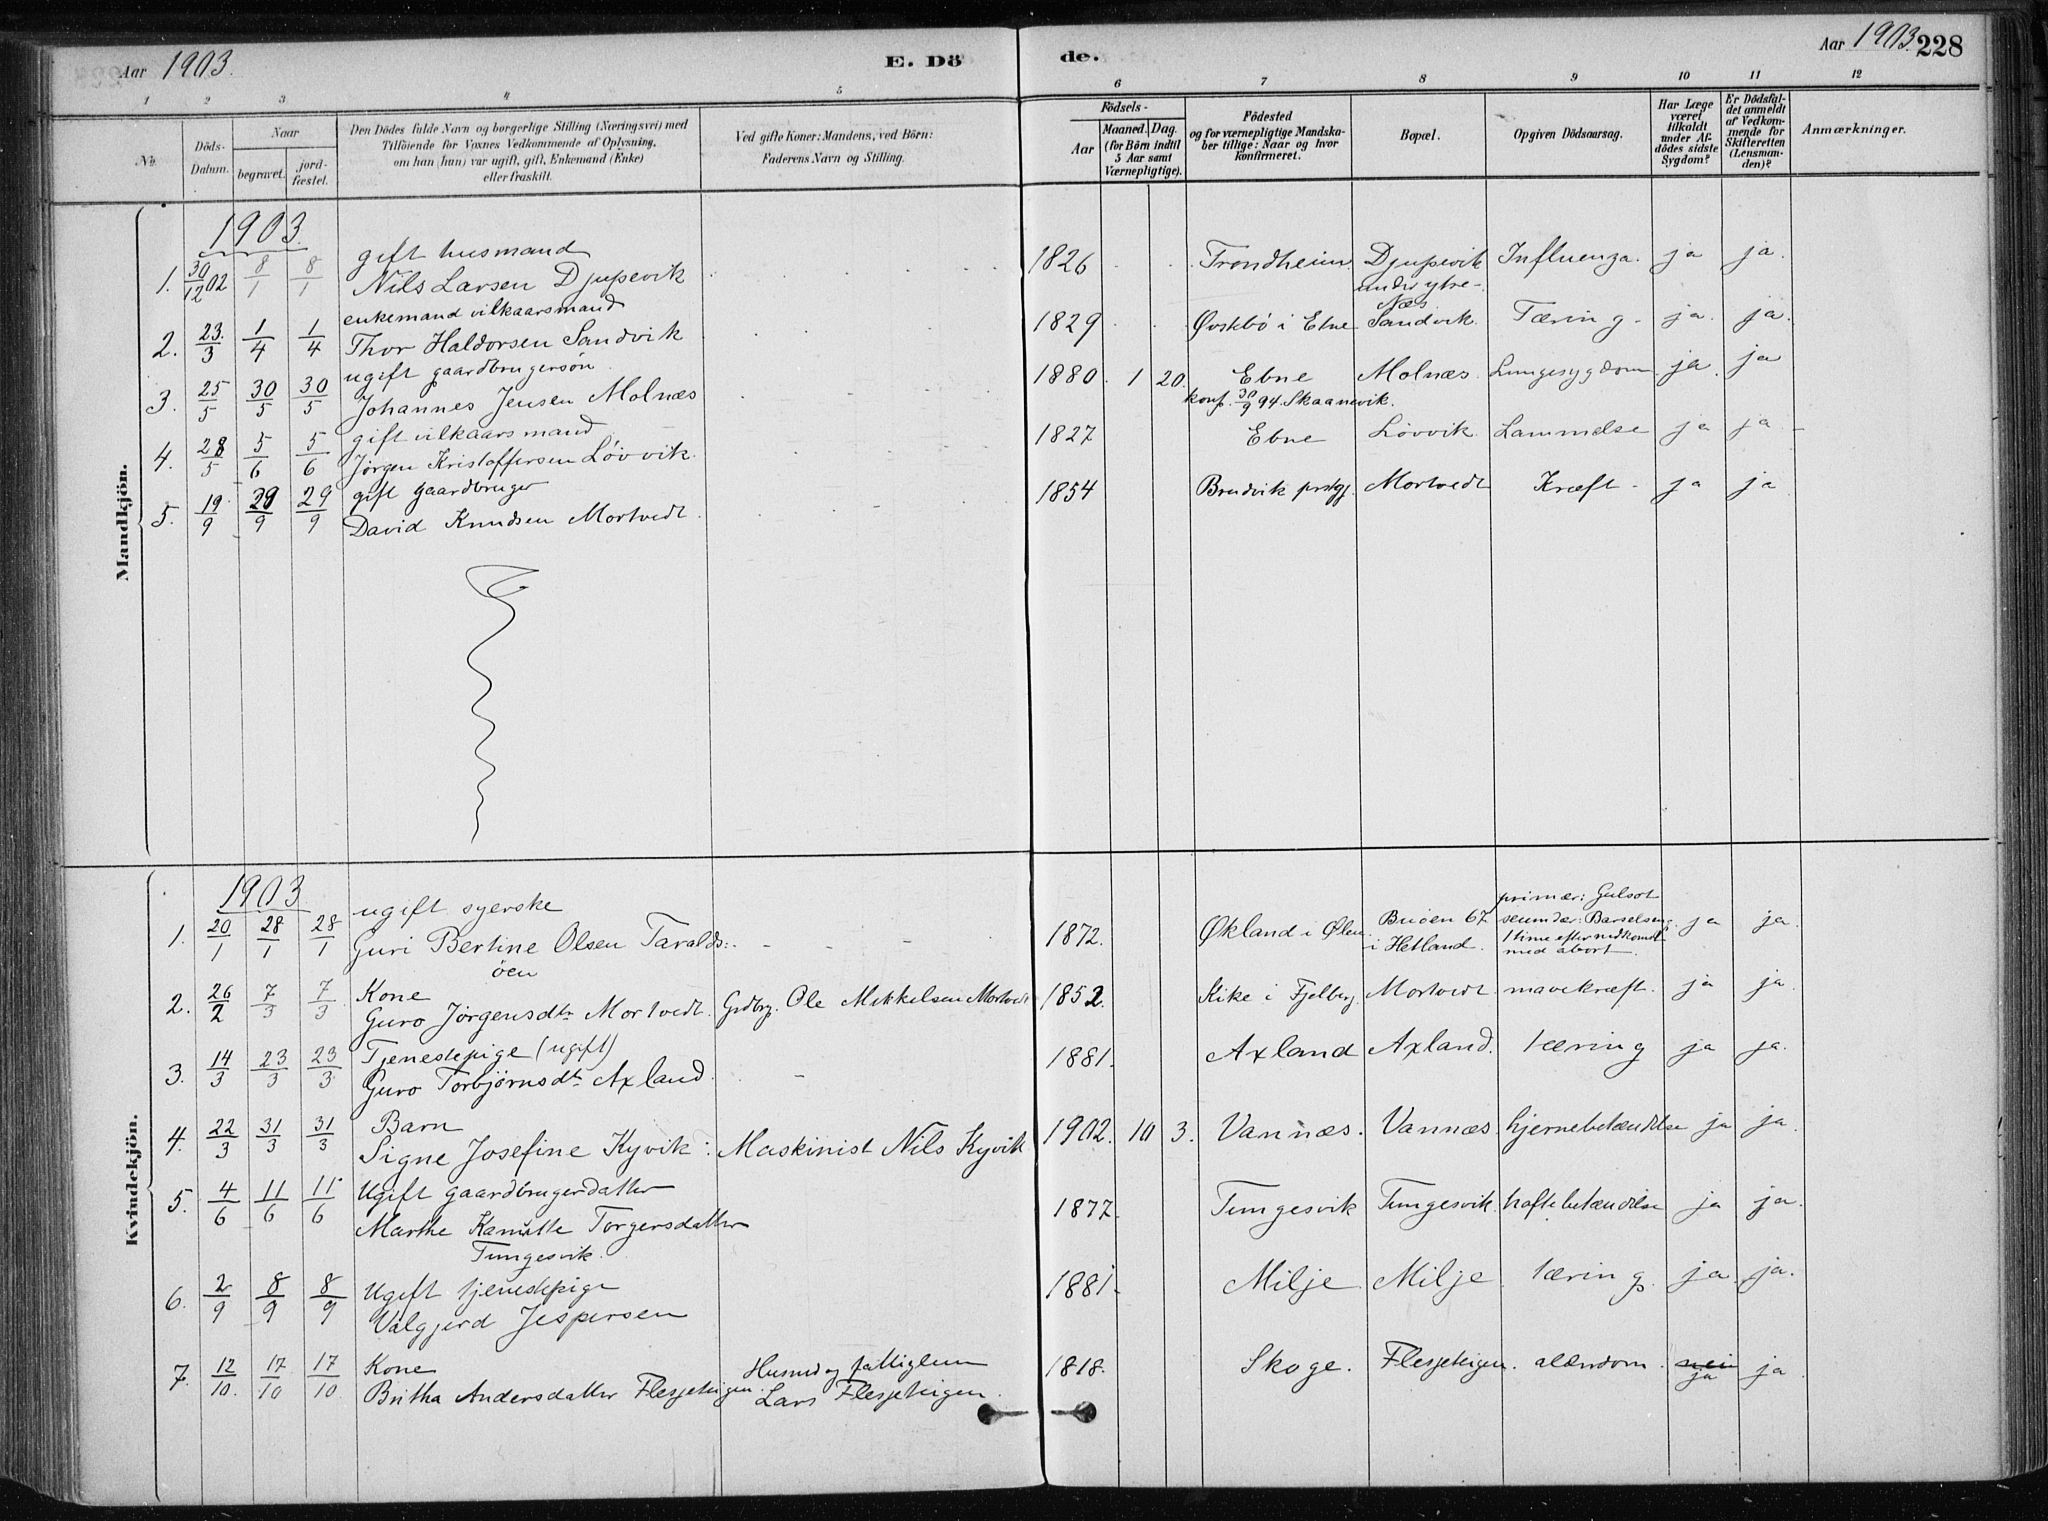 Aar 1903.
E. Dö
de.
Aar 1903. 228
1 2 3 4 5 6 7 8 9 10 11 12
No.
Döds-Datum.
Naar
begravet.
jord-fæstet.
Den Dödes fulde Navn og borgerlige Stilling (Næringsvei) med
Tilföiende for Voxnes Vedkommende af Oplysning,
om han (hun) var ugift, gift, Enkemand (Enke)
eller fraskilt.
Ved gifte Koner: Mandens, ved Börn:
Faderens Navn og Stilling.
Födsels-
Aar
Maaned. Dag.
(for Börn indtil
5 Aar samt
Værnepligtige).
Födested
og for værnepligtige Mandska-
ber tillige: Naar og hvor
konfirmeret.
Bopæl.
Opgiven Dödsaarsag.
Har Læge
været
tilkaldt
under Af-
dödes sidste
Sygdom?
Er Dödsfal-
det anmeldt
af Vedkom-
mende for
Skifteretten
(Lensman-
den)?
Anmærkninger.
Mandkjön.
1903.
gift husmand
1. 30/12 02 8/1 8/1 Nils Larsen Djupevik 1826 Trondheim. Djupevik under ytre Næs Influenza. ja ja.
enkemand vilkaarsmand
2. 23/3 1/4 1/4 Thor Haldorsen Sandvik 1829 Øvstebø i Etne Sandvik. Tæring. ja. ja.
ugift gaardbrugersön
3. 25/5 30/5 30/5 Johannes Jensen Molnæs 1880. 1 20. Ebne Molnæs. Lungesygdom ja. ja
konf. 30/9 94. Skaanevik.
gift vilkaarsmand
4. 28/5 5/6 5/6 Jørgen Kristoffersen Løvvik. 1827 Ebne Løvvik. Lammelse ja ja
gift gaardbruger
5. 19/9 29/9 29/9 David Knudsen Mortvedt. 1854 Bruvik prstgj. Mortvedt Kræft. ja ja
Kvindekjön.
1903
ugift syerske
1. 20/1 28/1 28/1 Guri Bertine Olsen Taralds: öen 1872. Økland i Ølen. Buöen 67 i Hetland. primær: Gulsot
secundær: Barselseng
1 time efter nedkomst
med abort. ja ja.
Kone
2. 26/2 7/3 7/3 Guro Jørgensdtr Mortvedt. Grdbrg. Ole Mikkelsen Mortvedt 1852. Eike i Fjelberg. Mortvedt mavekræft. ja ja.
Tjenestepige (ugift)
3. 14/3 23/3 23/3 Guro Torbjörnsdtr Axland. 1881. Axland Axland. tæring ja ja.
Barn
4. 22/3 31/3 31/3 Signe Josefine Kyvik: Maskinist Nils Kyvik 1902. 10 3. Vannæs. Vannæs. hjernebetændelse ja ja.
Ugift gaardbrugerdatter
5. 4/6 11/6 11/6 Marthe Kamille Torgersdatter
Tungesvik. 1877. Tungesvik Tungesvik. hoftebetændelse ja ja.
Ugift tjenestepige
6. 2/9 8/9 8/9 Valgjerd Jespersen 1881. Milje Milje. tæring. ja ja.
Kone
7. 12/10. 17/10 17/10. Britha Andersdatter Flesjeteigen. Husmd og fattiglem
Lars Flesjeteigen. 1818. Skoge. Flesjeteigen. alderdom. nei ja ja